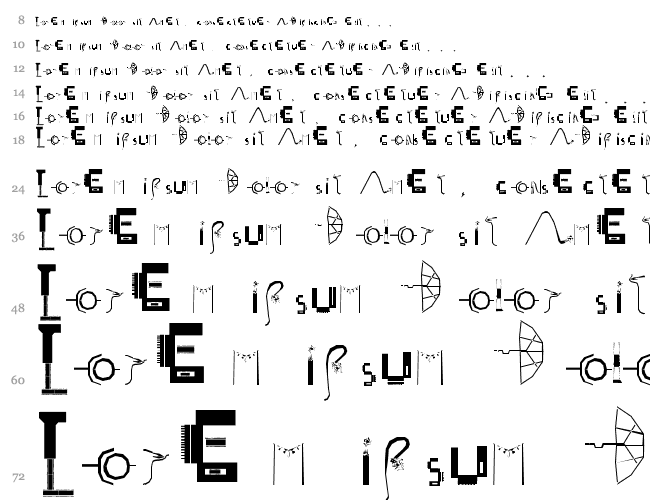 8 Lorem ipsum dolor sit AmEt, consectetue- Adipiscing Elit...
10 Lorem ipsum dolor sit AmEt, consectetue- Adipiscing Elit...
12 Lorem ipsum dolor sit AmEt, consectetue- Adipiscing Elit...
14 Lorem ipsum dolor sit AmEt, consectetue- Adipiscing Elit...
16 Lorem ipsum dolor sit AmEt, consectetue- Adipiscing Elit
18 Lorem ipsum dolor sit AmEt, consectetue- Adipiscin
24 Lorem ipsum dolor sit AmEt, consectet
36 Lorem ipsum dolor sit AmEt
48 Lorem ipsum dolor sit
60 Lorem ipsum dolo
72 Lorem ipsum d